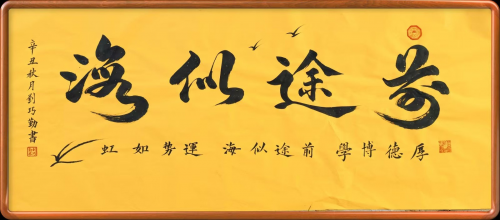 前途似海
厚德博學 前途似海 運势如虹
辛丑秋月劉巧勤書